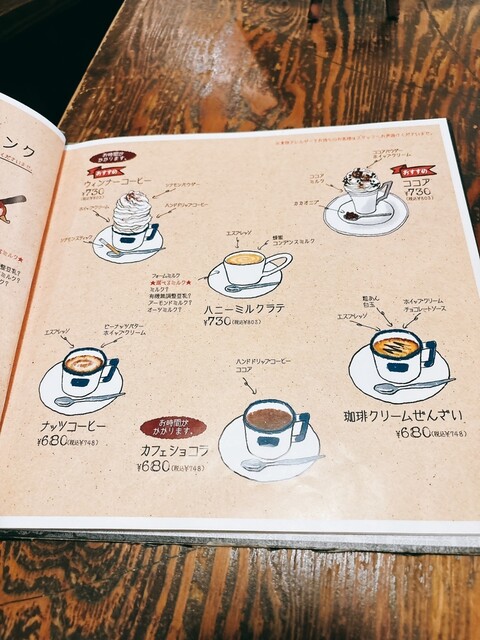 ンク
お時間が
かかります。
おすすめ
ウィンナーコーヒー
¥730
(税込¥803)
シナモンパウダー
ホイップクリーム
ハンドドリップコーヒー
シナモンスティック
ココアパウダー
ホイップクリーム
ココア
ミルク
おすすめ
ココア
¥730
(税込¥803)
エスプレッソ
蜂蜜
コンデンスミルク
フォームミルク
★選べるミルク★
ミルク?
有機無調整豆乳?
アーモンドミルク?
オーツミルク?
ハニーミルクラテ
¥730(税込¥803)
エスプレッソ
ピーナッツバター
ホイップクリーム
ナッツコーヒー
¥680(税込¥748)
ハンドドリップコーヒー
ココア
お時間が
かかります。
カフェショコラ
¥680(税込¥748)
エスプレッソ
粒あん
白玉
ホイップクリーム
チョコレートソース
珈琲クリームぜんざい
¥680(税込¥748)